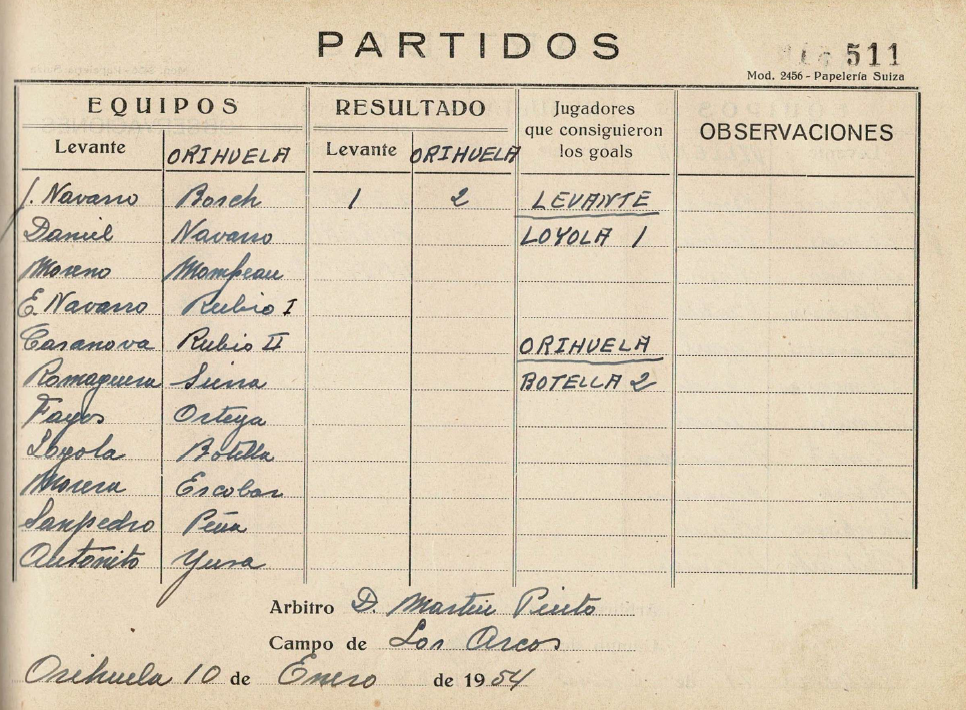 PARTIDOS
511
Mod. 2456 - Papelería Suiza
EQUIPOS RESULTADO Jugadores que consiguieron los goals OBSERVACIONES
Levante ORIHUELA Levante ORIHUELA
J. Navarro Bosch 1 2 LEVANTE
Daniel Navarro LOYOLA 1
Moreno Mompeau
E. Navarro Rubio I
Casanova Rubio II ORIHUELA
Romaguera Sierra BOTELLA 2
Fayos Ortega
Loyola Botella
Morera Escobar
Sanpedro Peña
Antoñito Yusa
Arbitro D. Martin Pinto
Campo de Los Arcos
Orihuela 10 de Enero de 1954